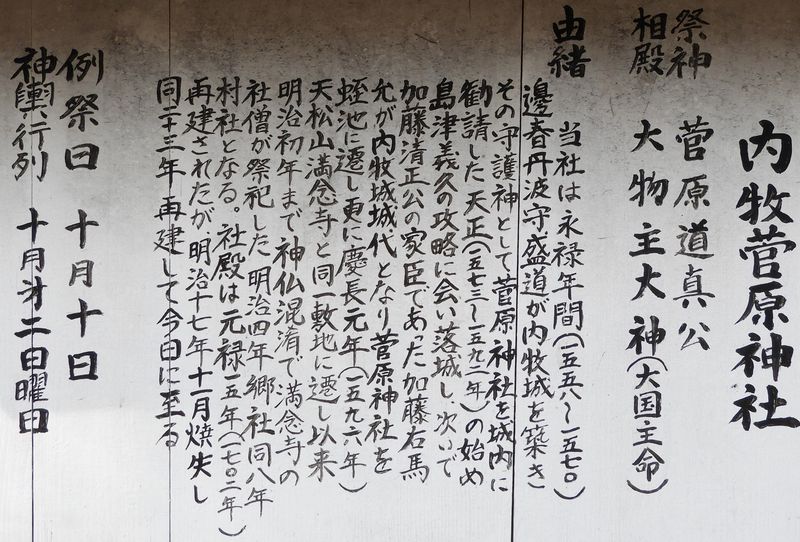 内牧菅原神社
祭神　菅原道真公
相殿　大物主大神（大国主命）
由緒
当社は永禄年間（一五五八〜一五七〇）
邊春丹波守盛道が内牧城を築き
その守護神として菅原神社を城内に
勧請した天正（一五七三〜一五九二年）の始め
島津義久の攻略に会い落城し、次いで
加藤清正公の家臣であった加藤右馬
允が内牧城城代となり菅原神社を
蛭池に遷し更に慶長元年（一五九六年）
天松山満念寺と同一敷地に遷し以来
明治初年まで神仏混淆で満念寺の
社僧が祭祀した明治四年郷社同八年
村社となる。社殿は元禄十五年（一七〇二年）
再建されたが明治十七年十一月焼失し
同二十三年再建して今日に至る
例祭日　十月十日
神輿行列　十月才二日曜日